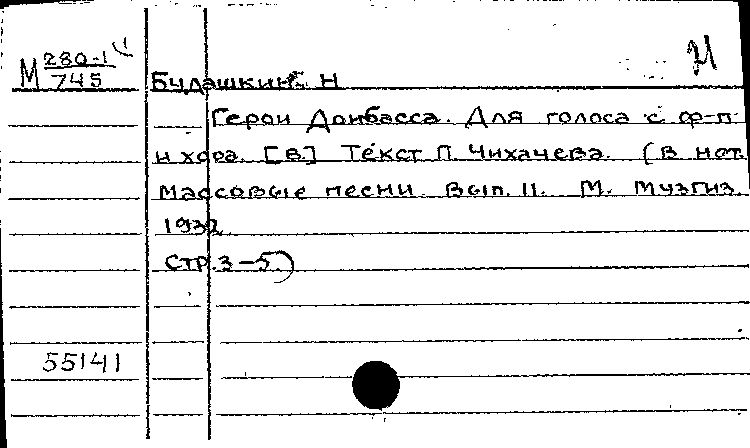 М 280-1
745
И
Будашкин Н
Герои Донбасса. Для голоса с ф-п
и хора. [В.] Текст П. Чихачева. (В нот.
Массовые песни. Вып. 11. М. Музгиз.
1932
стр. 3-5)
55141